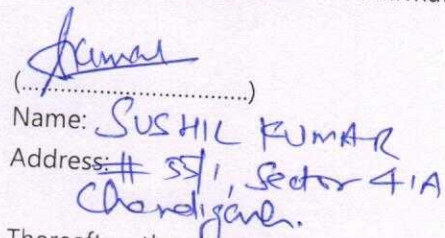 Kumar
(................................)
Name: SUSHIL KUMAR
Address: # 551, Sector 41A
Chandigarh.
Thereafter the